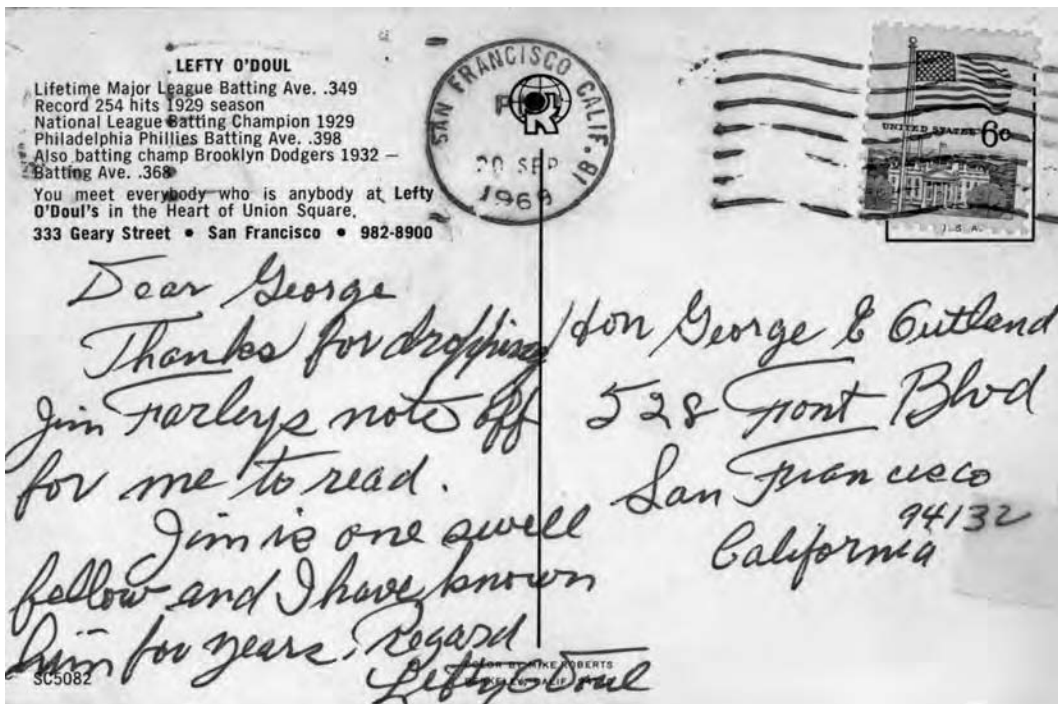 LEFTY O'DOUL
Lifetime Major League Batting Ave. .349
Record 254 hits 1929 season
National League Batting Champion 1929
Philadelphia Phillies Batting Ave. .398
Also batting champ Brooklyn Dodgers 1932 —
Batting Ave. .368
You meet everybody who is anybody at Lefty
O'Doul's in the Heart of Union Square.
333 Geary Street • San Francisco • 982-8900
SAN FRANCISCO CALIF. 81
20 SEP
1969
UNITED STATES 6c
U.S.A.
Dear George
Thanks for dropping
Jim Farleys note off
for me to read.
Jim is one swell
fellow and I have known
him for years. Regard
Lefty O'Doul
Hon George E Outland
528 Font Blvd
San Francisco
94132
California
COLOR BY MIKE ROBERTS
BERKELEY, CALIF.
SC5082